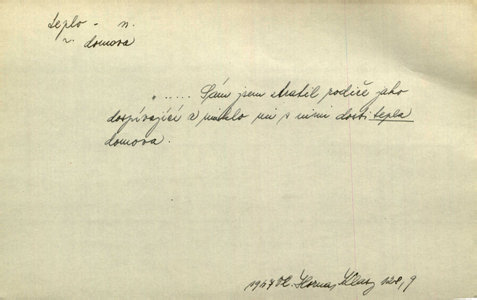 teplo - n.
v. domova
. ..... Sám jsem ztratil rodiče jako
dospívající a uniklo mi s nimi dosti tepla
domova.
1947 Vl. Hornas, 128, 9